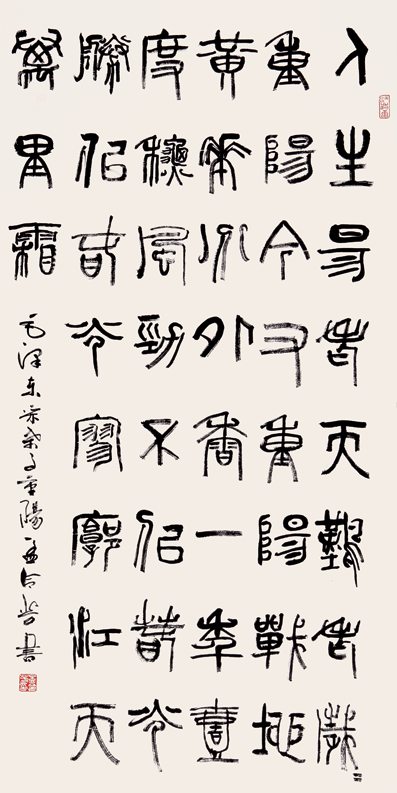 人生易老天難老歲〻
重陽今又重陽戰地
黃華分外香一年壹
度秋風勁不佀春光
勝佀春光寥廓江天
萬里霜
毛澤東采桑子重陽 書